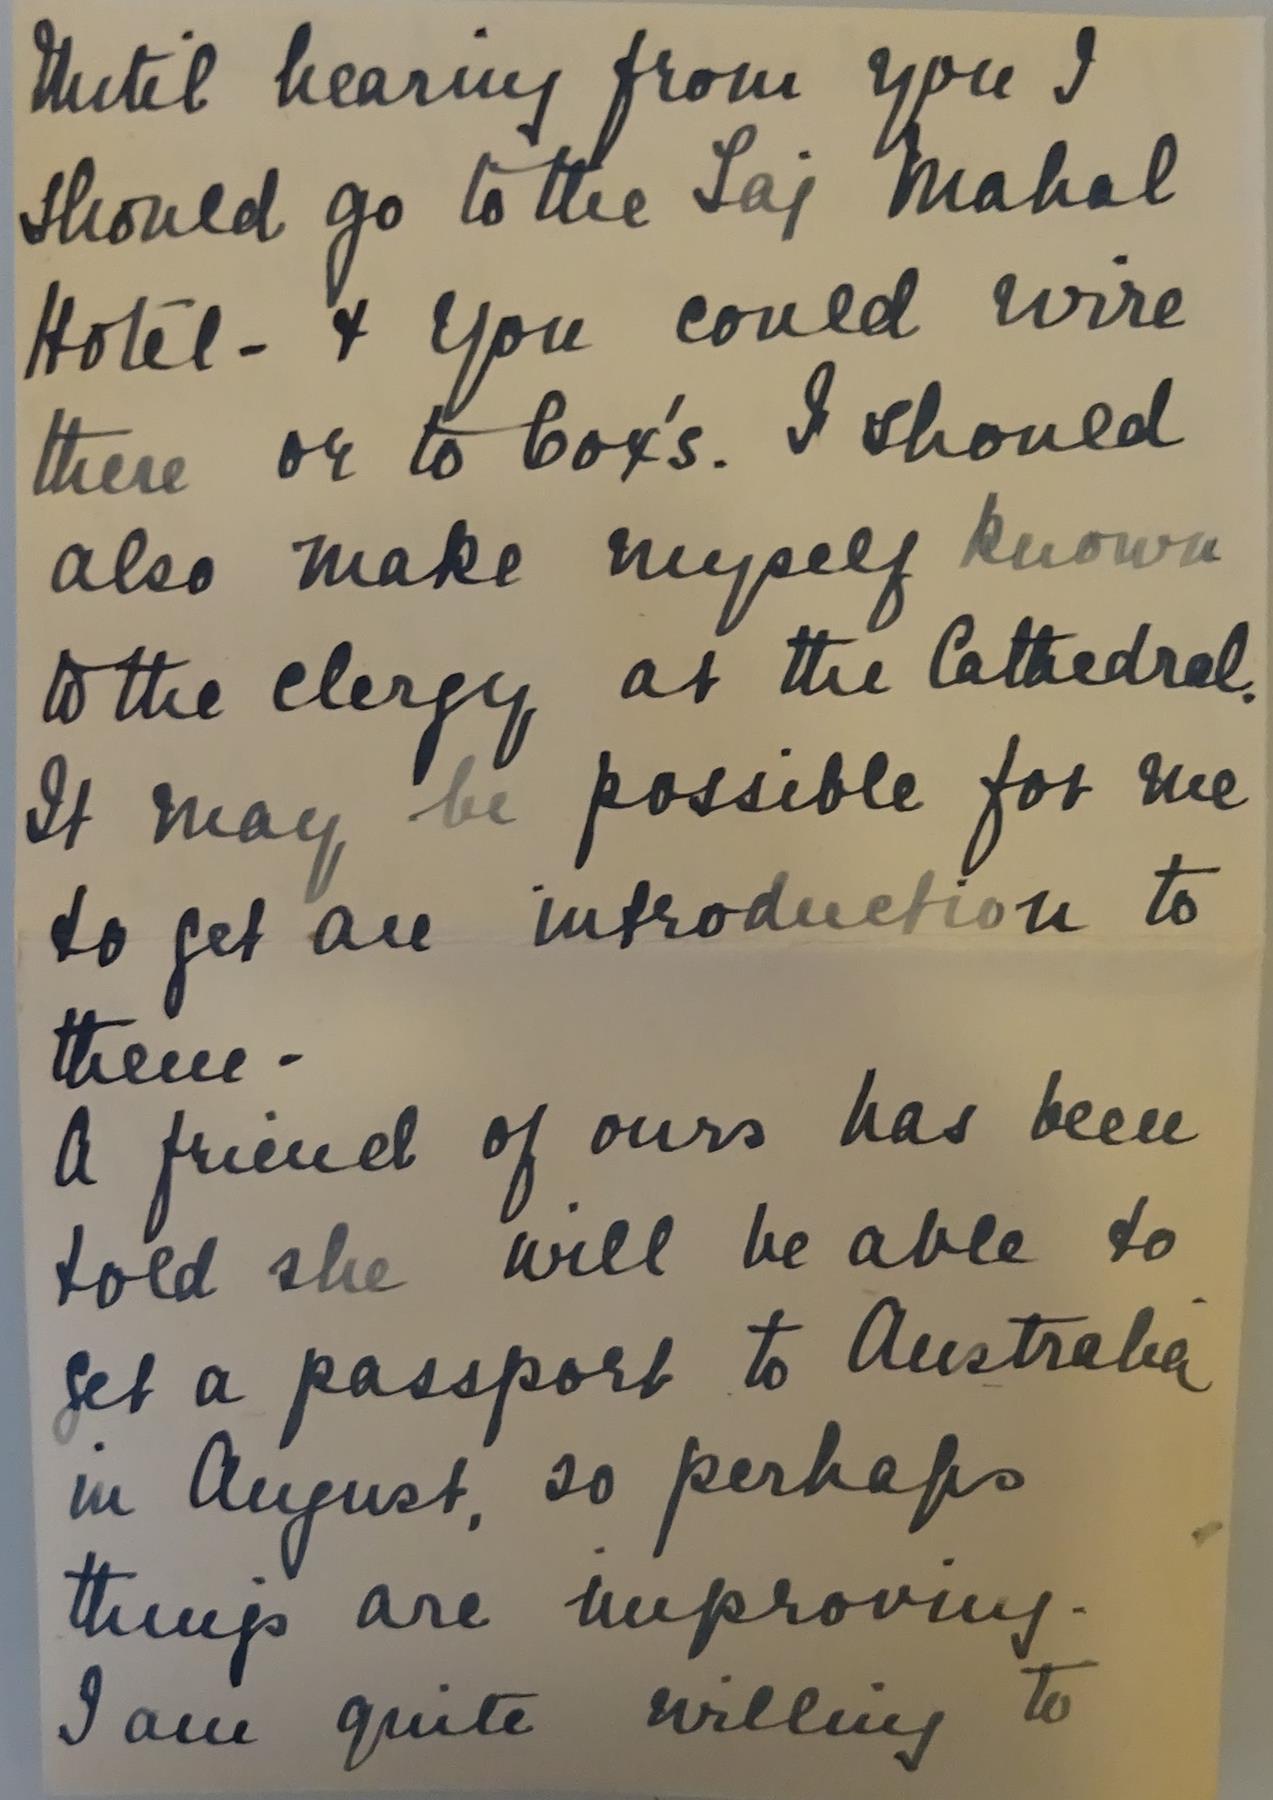 Until hearing from you I
should go to the Taj Mahal
Hotel - & you could wire
there or to Cox's. I should
also make myself known
to the clergy at the Cathedral.
It may be possible for me
to get an introduction to
them -
A friend of ours has been
told she will be able to
get a passport to Australia
in August, so perhaps
things are improving -
I am quite willing to